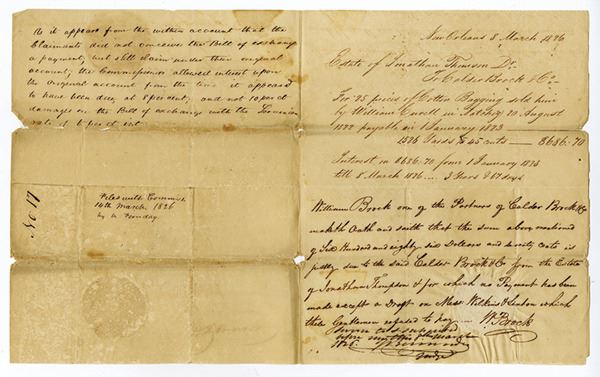 As it appears from the within account that the
Claimants did not conceive the Bill of exchange
a payment, but still claim under their original
account; the Commissioner allowed interest upon
the original account from the time it appeared
to have been due, at 8 per cent; and not 10 per ct
damages on the Bill of exchange with the
rate of 6 per ct int.
No 17
Filed with Commis.
14th March 1826
New Orleans 8 March 1826
Estate of Jonathan Thomson Dr
To Calder Brock & Co
For 25 pieces of Cotton Bagging sold him
by William in 20 August
1822 payable on 1 January 1823
1526 Yards @ 45 cents — $686.70
Interest on $686.70 from 1 January 1823
till 8 March 1826 .... 3 Years & 67 days
William Brock one of the Partners of Calder Brock & Co
maketh Oath and saith that the sum above mentioned
of Six Hundred and eighty six Dollars and seventy cents is
justly due to the said Calder Brock & Co from the Estate
of Jonathan Thompson & for which no Payment has been
made except a Draft on Messrs Wilkins & Linton which
these Gentlemen refused to pay — Wm Brock
Sworn to & subscribed
before me this March
1826.
Judge